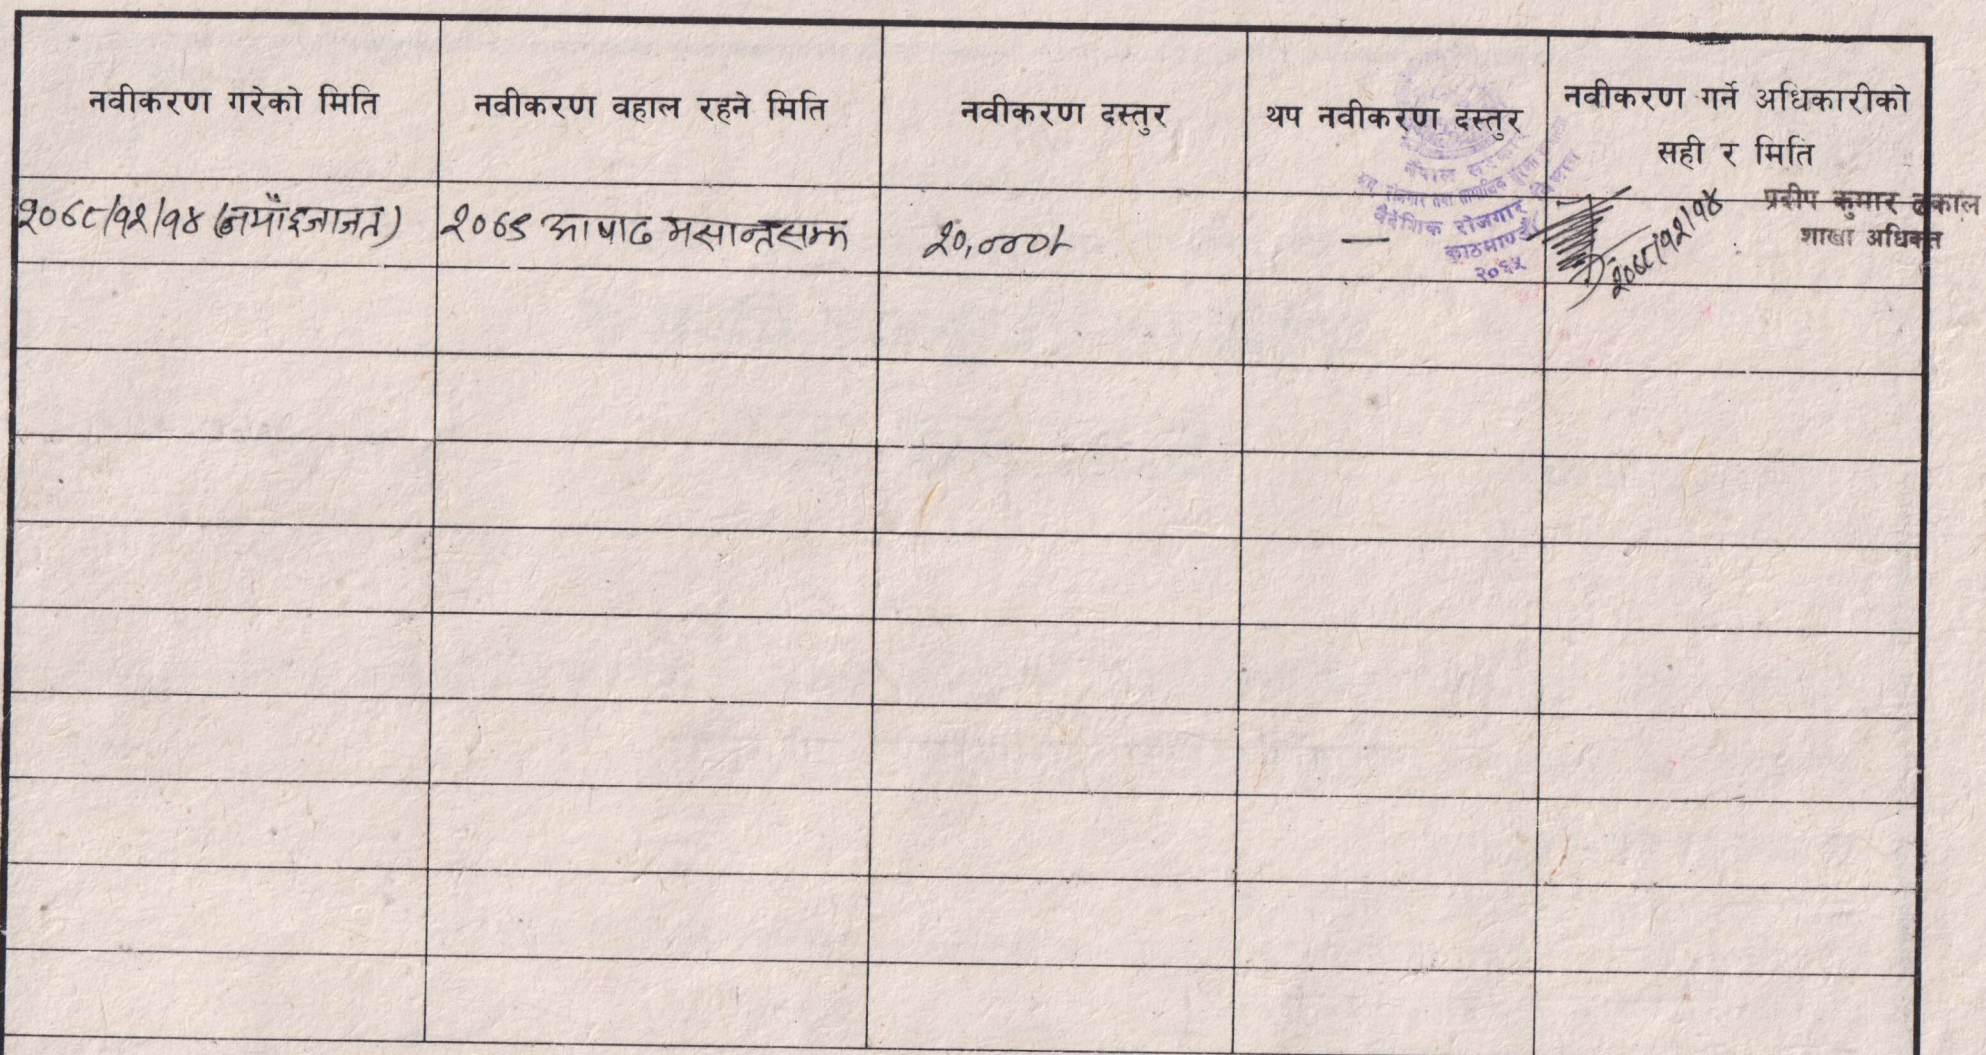 नवीकरण गरेको मिति
नवीकरण वहाल रहने मिति
नवीकरण दस्तुर
थप नवीकरण दस्तुर
नवीकरण गर्ने अधिकारीको
सही र मिति
२०६८/१२/१४ (नयाँ इजाजत)
२०६९ आषाढ मसान्तसम्म
२०,०००/-
—
२०६८/१२/१४
प्रदीप कुमार ढकाल
शाखा अधिकृत
नेपाल सरकार
वैदेशिक रोजगार
काठमाण्डौ
२०६५